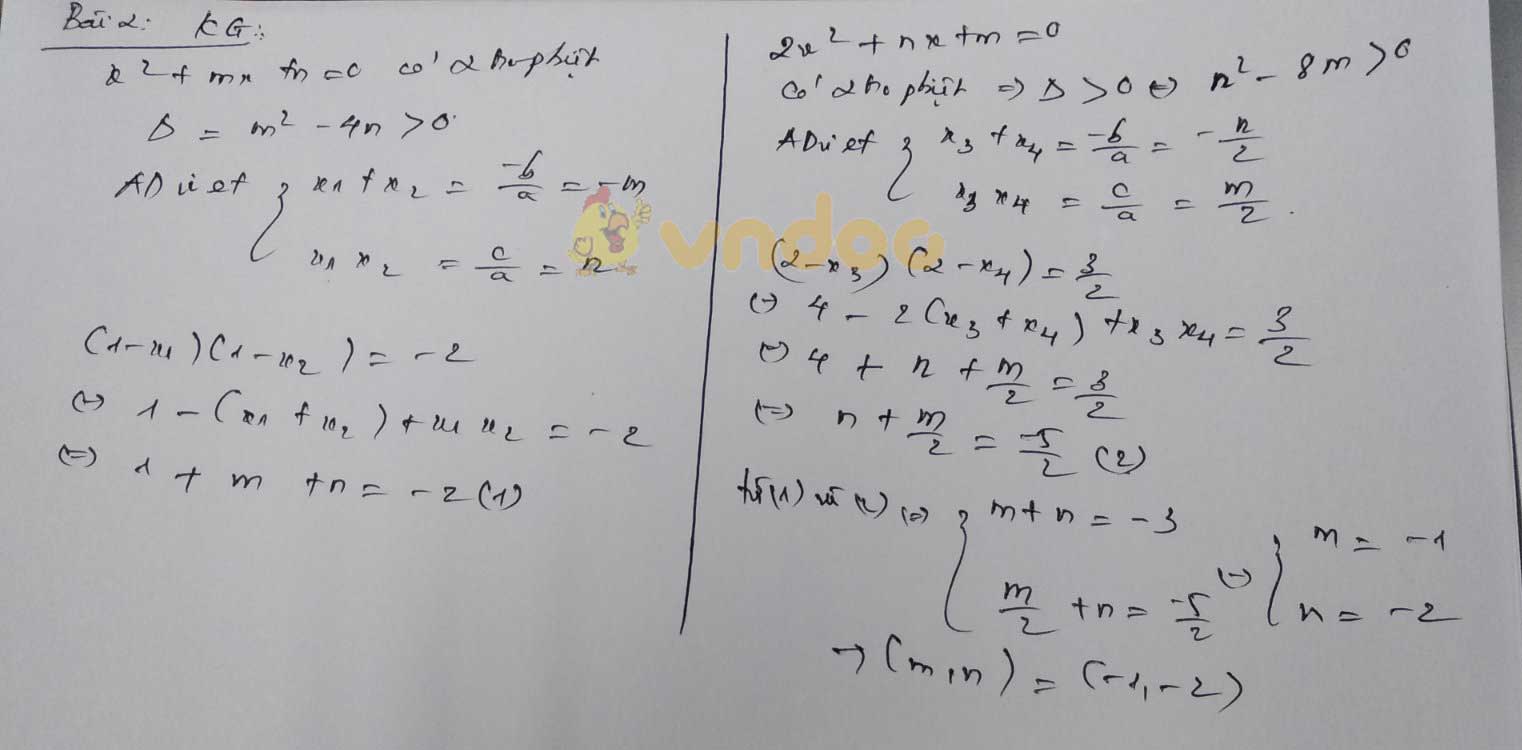 Bài 2: KG:
x² + mx + n = 0 có 2 no phbiệt
Δ = m² - 4n > 0
AD viet { x₁ + x₂ = -b/a = -m
x₁ x₂ = c/a = n
(1-x₁)(1-x₂) = -2
(=) 1 - (x₁ + x₂) + x₁ x₂ = -2
(=) 1 + m + n = -2 (1)
2x² + nx + m = 0
có 2 no phbiệt => Δ > 0 (=) n² - 8m > 0
AD viet { x₃ + x₄ = -b/a = -n/2
x₃ x₄ = c/a = m/2.
(2-x₃)(2-x₄) = 3/2
(=) 4 - 2(x₃ + x₄) + x₃ x₄ = 3/2
(=) 4 + n + m/2 = 3/2
(=) n + m/2 = -5/2 (2)
từ (1) và (2) (=) { m + n = -3
m/2 + n = -5/2 (=) { m = -1
n = -2
→ (m,n) = (-1,-2)
vndoc